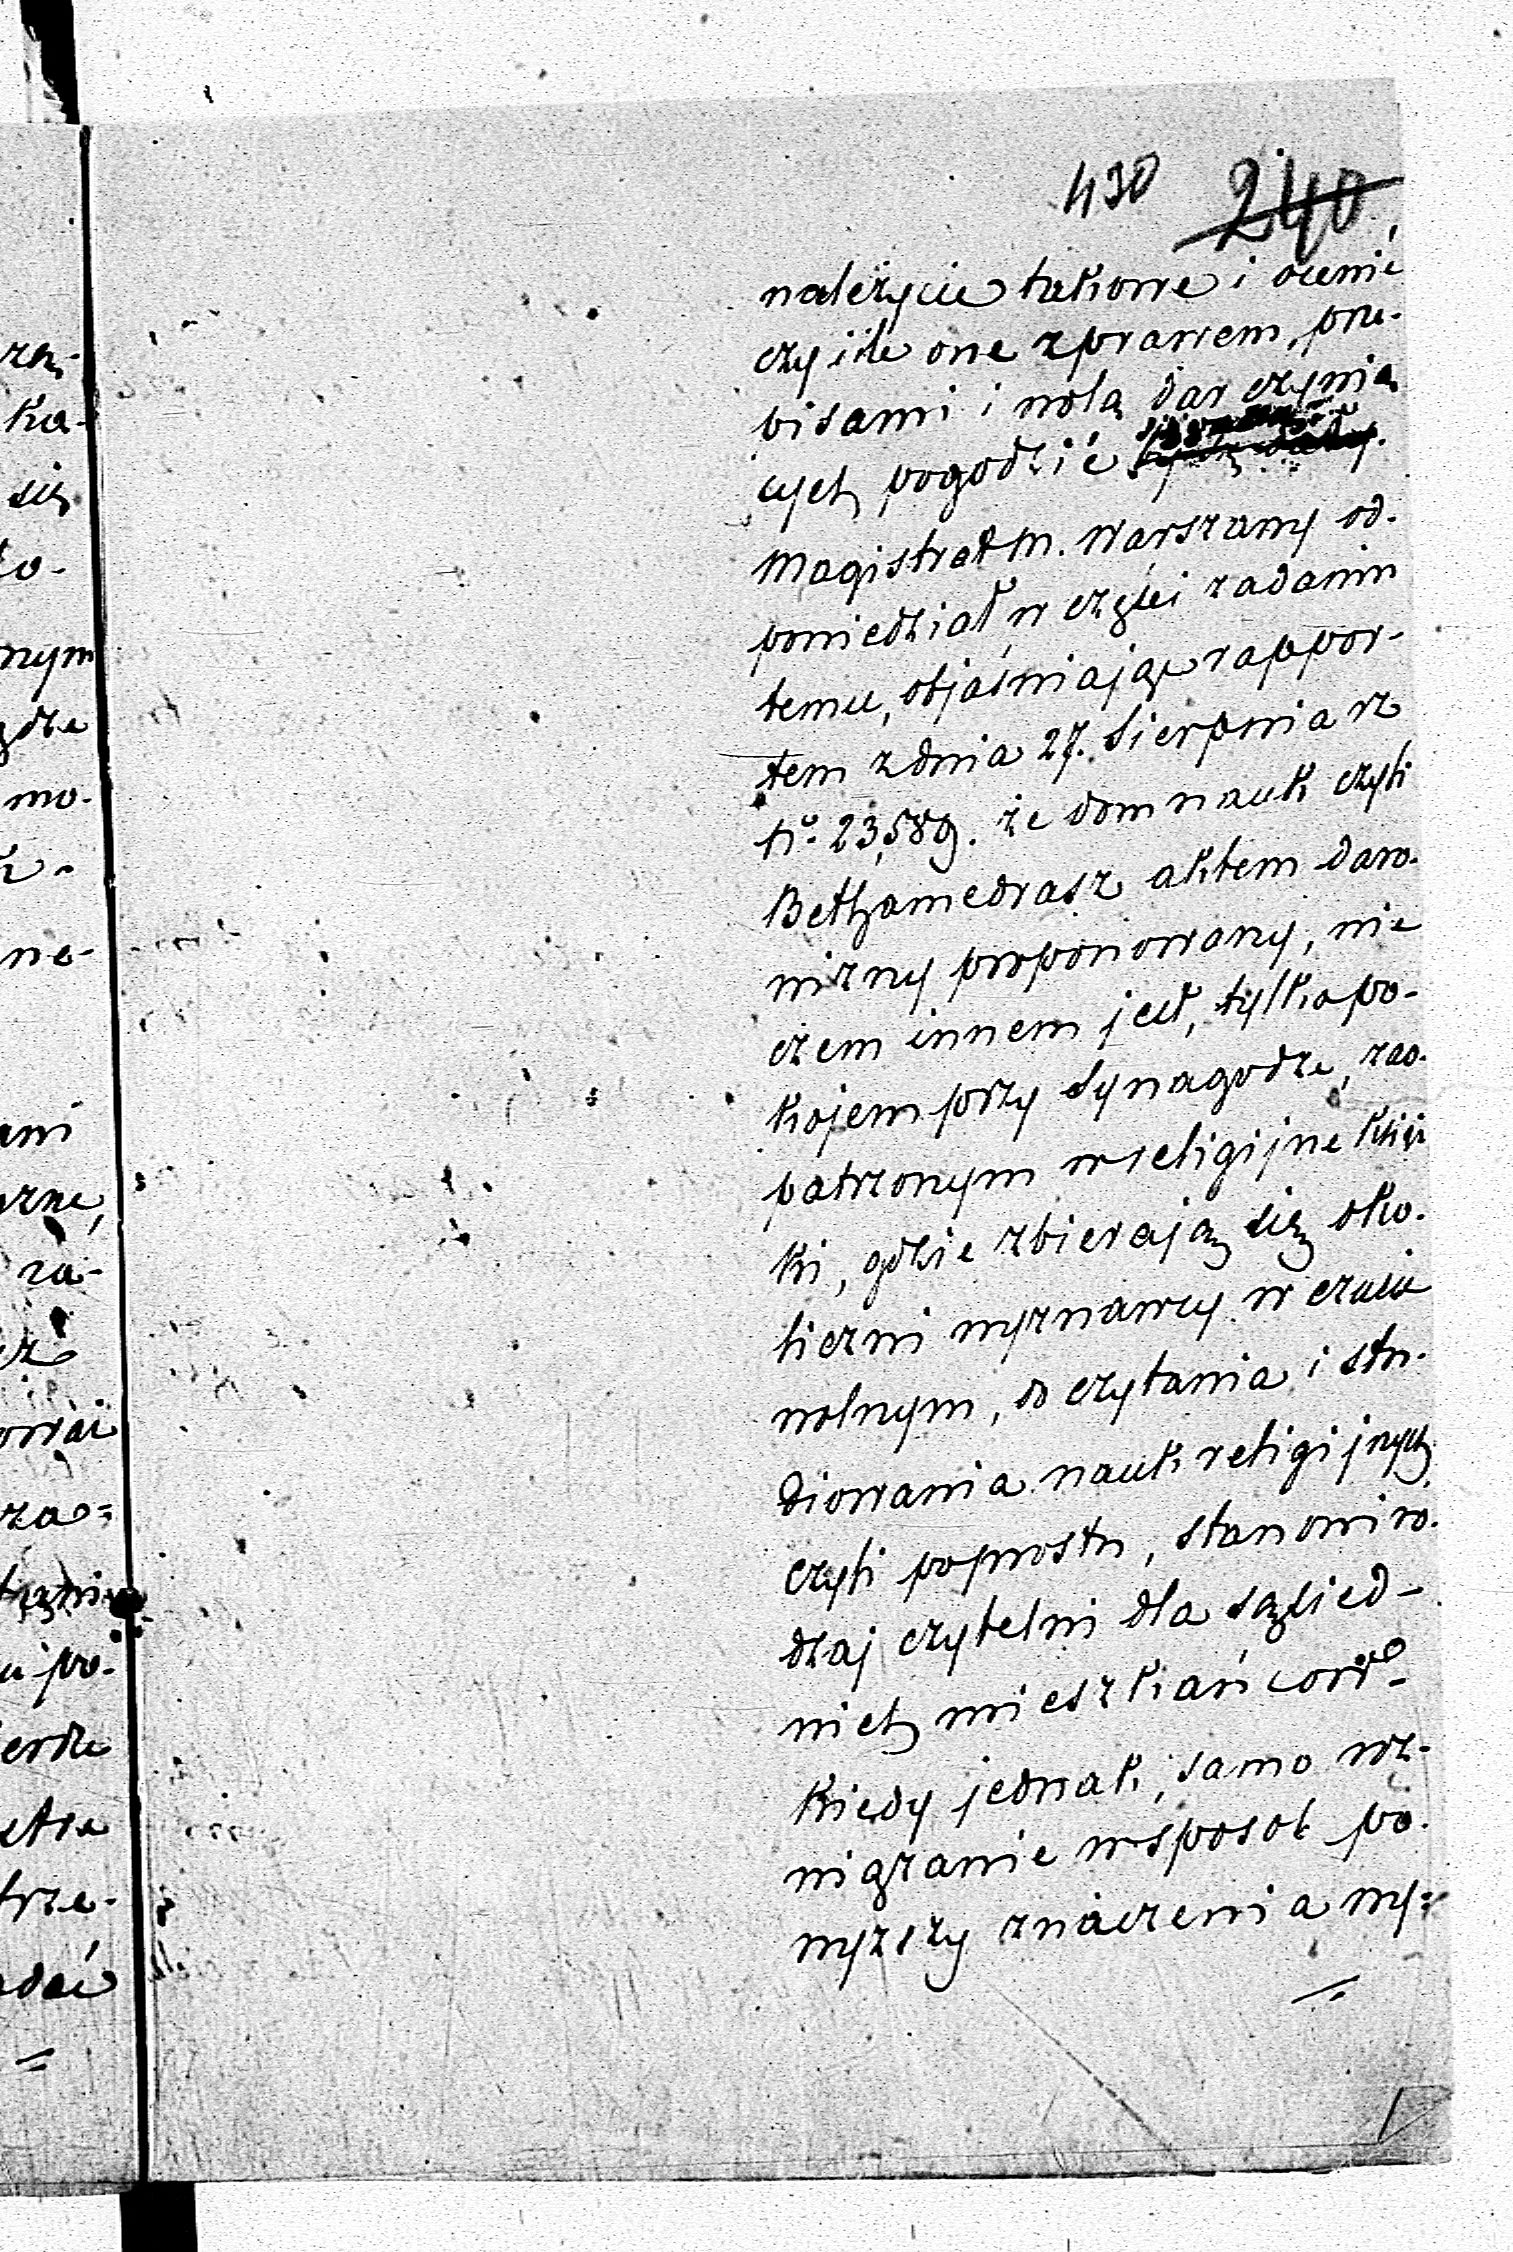 430 240
należycie takowe i ocenić
czy i ile one z prawem, prze-
pisami i wolą dar czynią
cych pogodzić
Magistrat M. Warszawy od-
powiedział w części zadaniu
temu, objaśniając rappor-
tem z dnia 27. Sierpnia rz
No 23,589. że dom nauk czyli
Bethamedrasz aktem daro-
wizny proponowany, nie
czem innem jest, tylko po-
kojem przy Synagodze, zao-
patrzonym w religijne Książ
ki, gdzie zbierają się oko-
liczni wyznawcy w czasie
wolnym, do czytania i stu-
diowania nauk religijnych,
czyli poprostu, stanowi ro-
dzaj czytelni dla sąsied-
nich mieszkańców.
Kiedy jednak, samo roz-
wiązanie w sposób po-
wyższy znaczenia wy-
rzą-
ka-
się
nym
gdze
mo-
ne-
ami
rzne,
za-
ować
za-
po-
erdze
trze-
adać